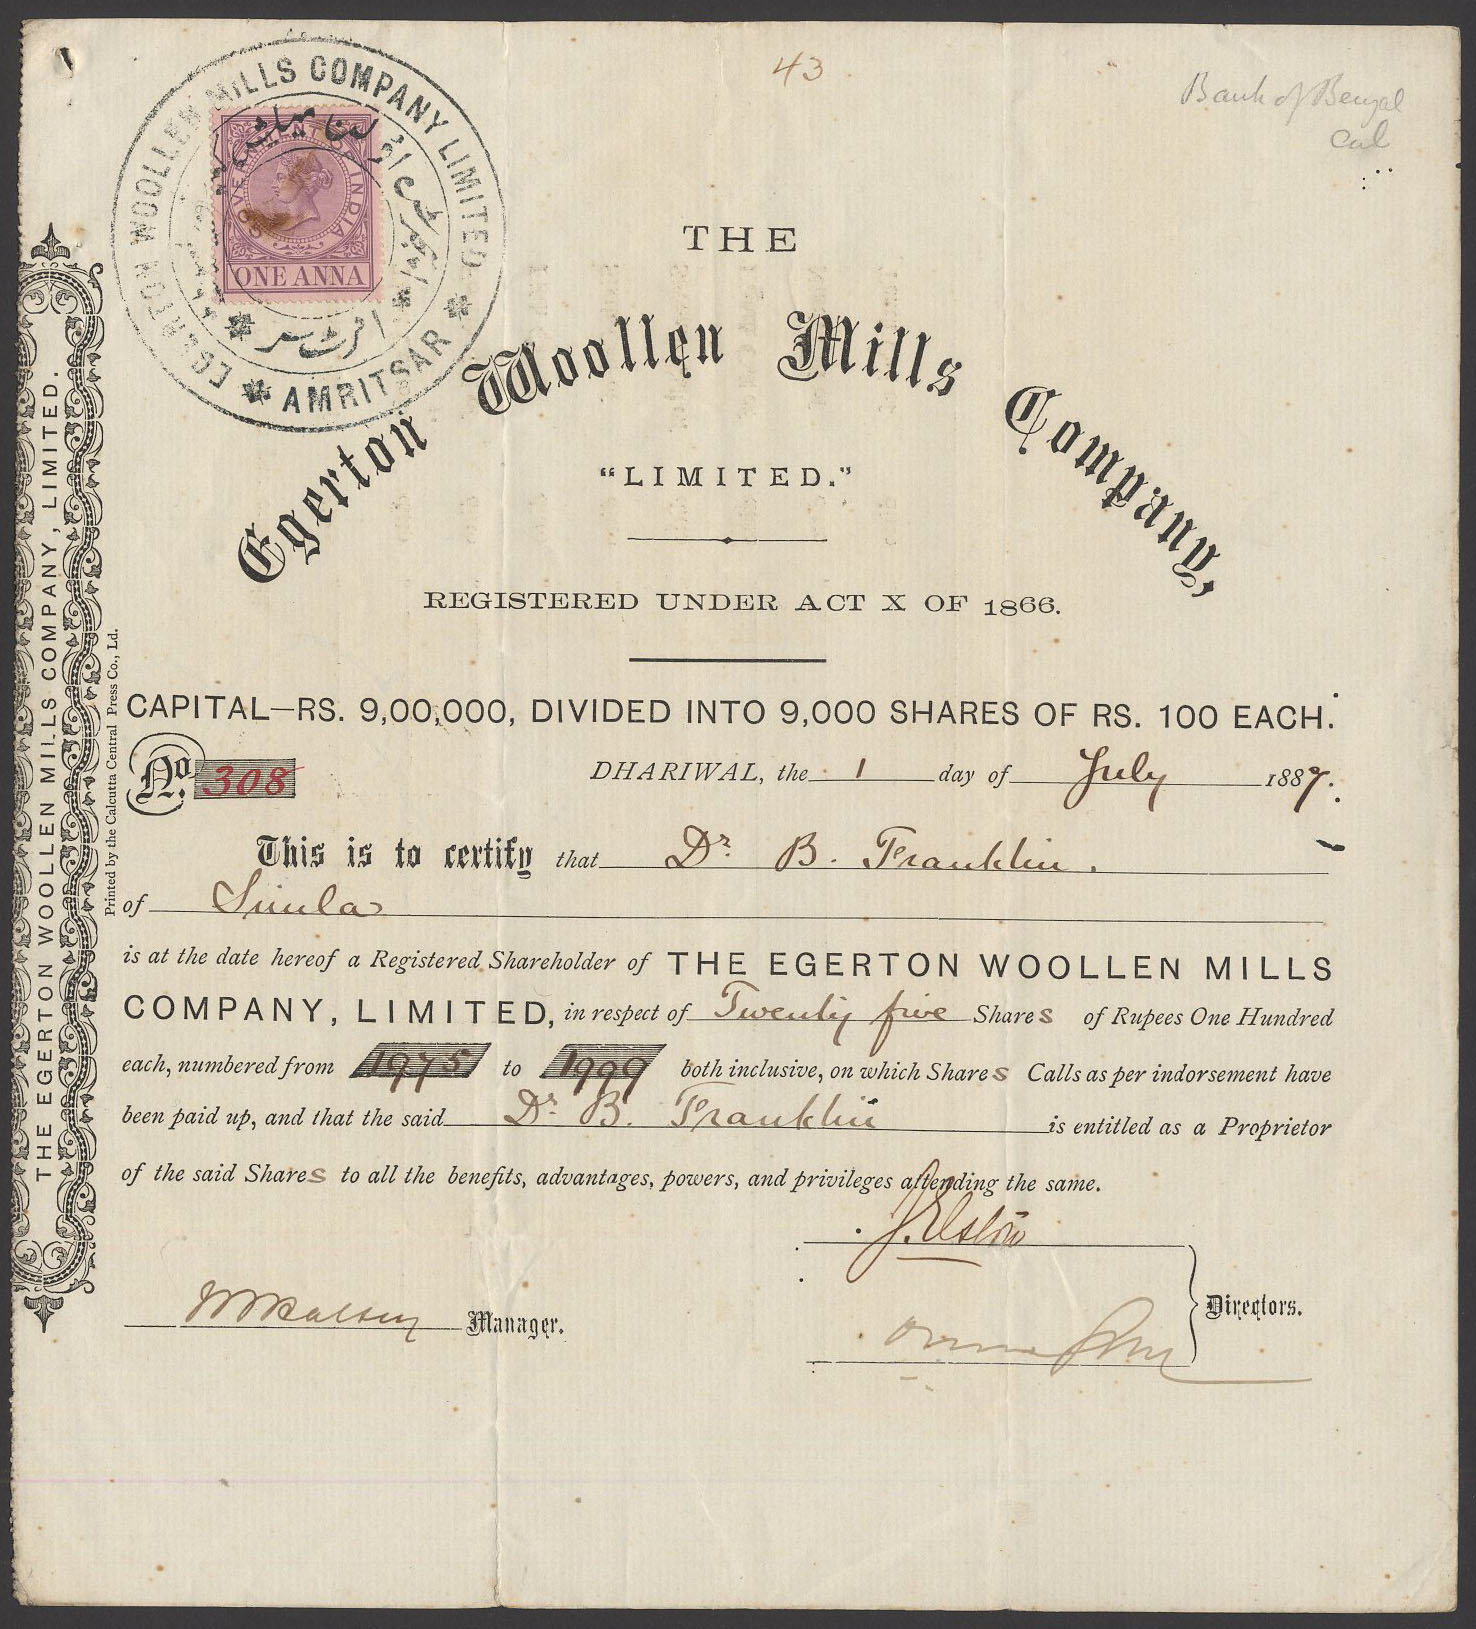 43
Bank of Bengal
Cal
EGERTON WOOLLEN MILLS COMPANY LIMITED
AMRITSAR
امرتسر
GOVERNMENT OF INDIA
ONE ANNA
THE
Egerton Woollen Mills Company,
"LIMITED."
REGISTERED UNDER ACT X OF 1866.
CAPITAL—RS. 9,00,000, DIVIDED INTO 9,000 SHARES OF RS. 100 EACH.
No. 308
DHARIWAL, the 1 day of July 1887.
This is to certify that Dr. B. Franklin.
of Simla
is at the date hereof a Registered Shareholder of THE EGERTON WOOLLEN MILLS
COMPANY, LIMITED, in respect of Twenty five Shares of Rupees One Hundred
each, numbered from 1975 to 1999 both inclusive, on which Shares Calls as per indorsement have
been paid up, and that the said Dr. B. Franklin is entitled as a Proprietor
of the said Shares to all the benefits, advantages, powers, and privileges attending the same.
Manager.
Directors.
THE EGERTON WOOLLEN MILLS COMPANY, LIMITED.
Printed by the Calcutta Central Press Co., Ld.